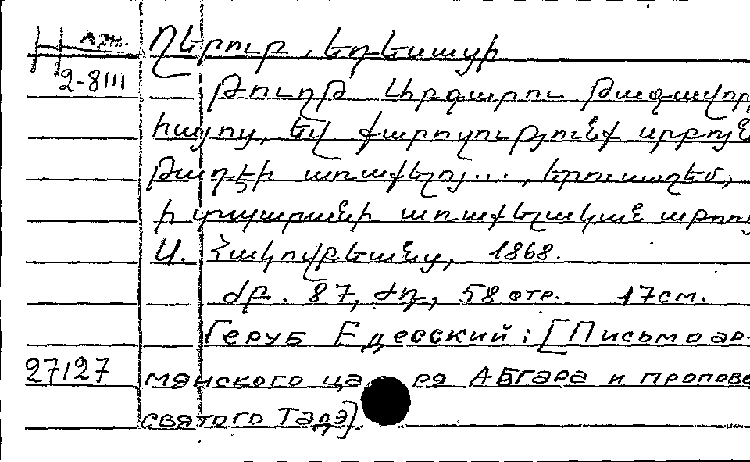 H арм. Ղերուբ, Եդեսացի
2-8111
Թուղթ Աբգարու Թագավոր
հայոց, եվ քարոզությունք սրբոյն
Թադէի առաքելոյ..., Երուսաղեմ,
ի տպարանի առաքելական աթոռոյ
Ս. Հակովբեանց, 1868.
ժբ. 87, ժդ, 58 стр. 17 см.
Геруб Едесский: [Письмо ар-
27127 мянского царя Абгара и пропове
святого Тадэ]